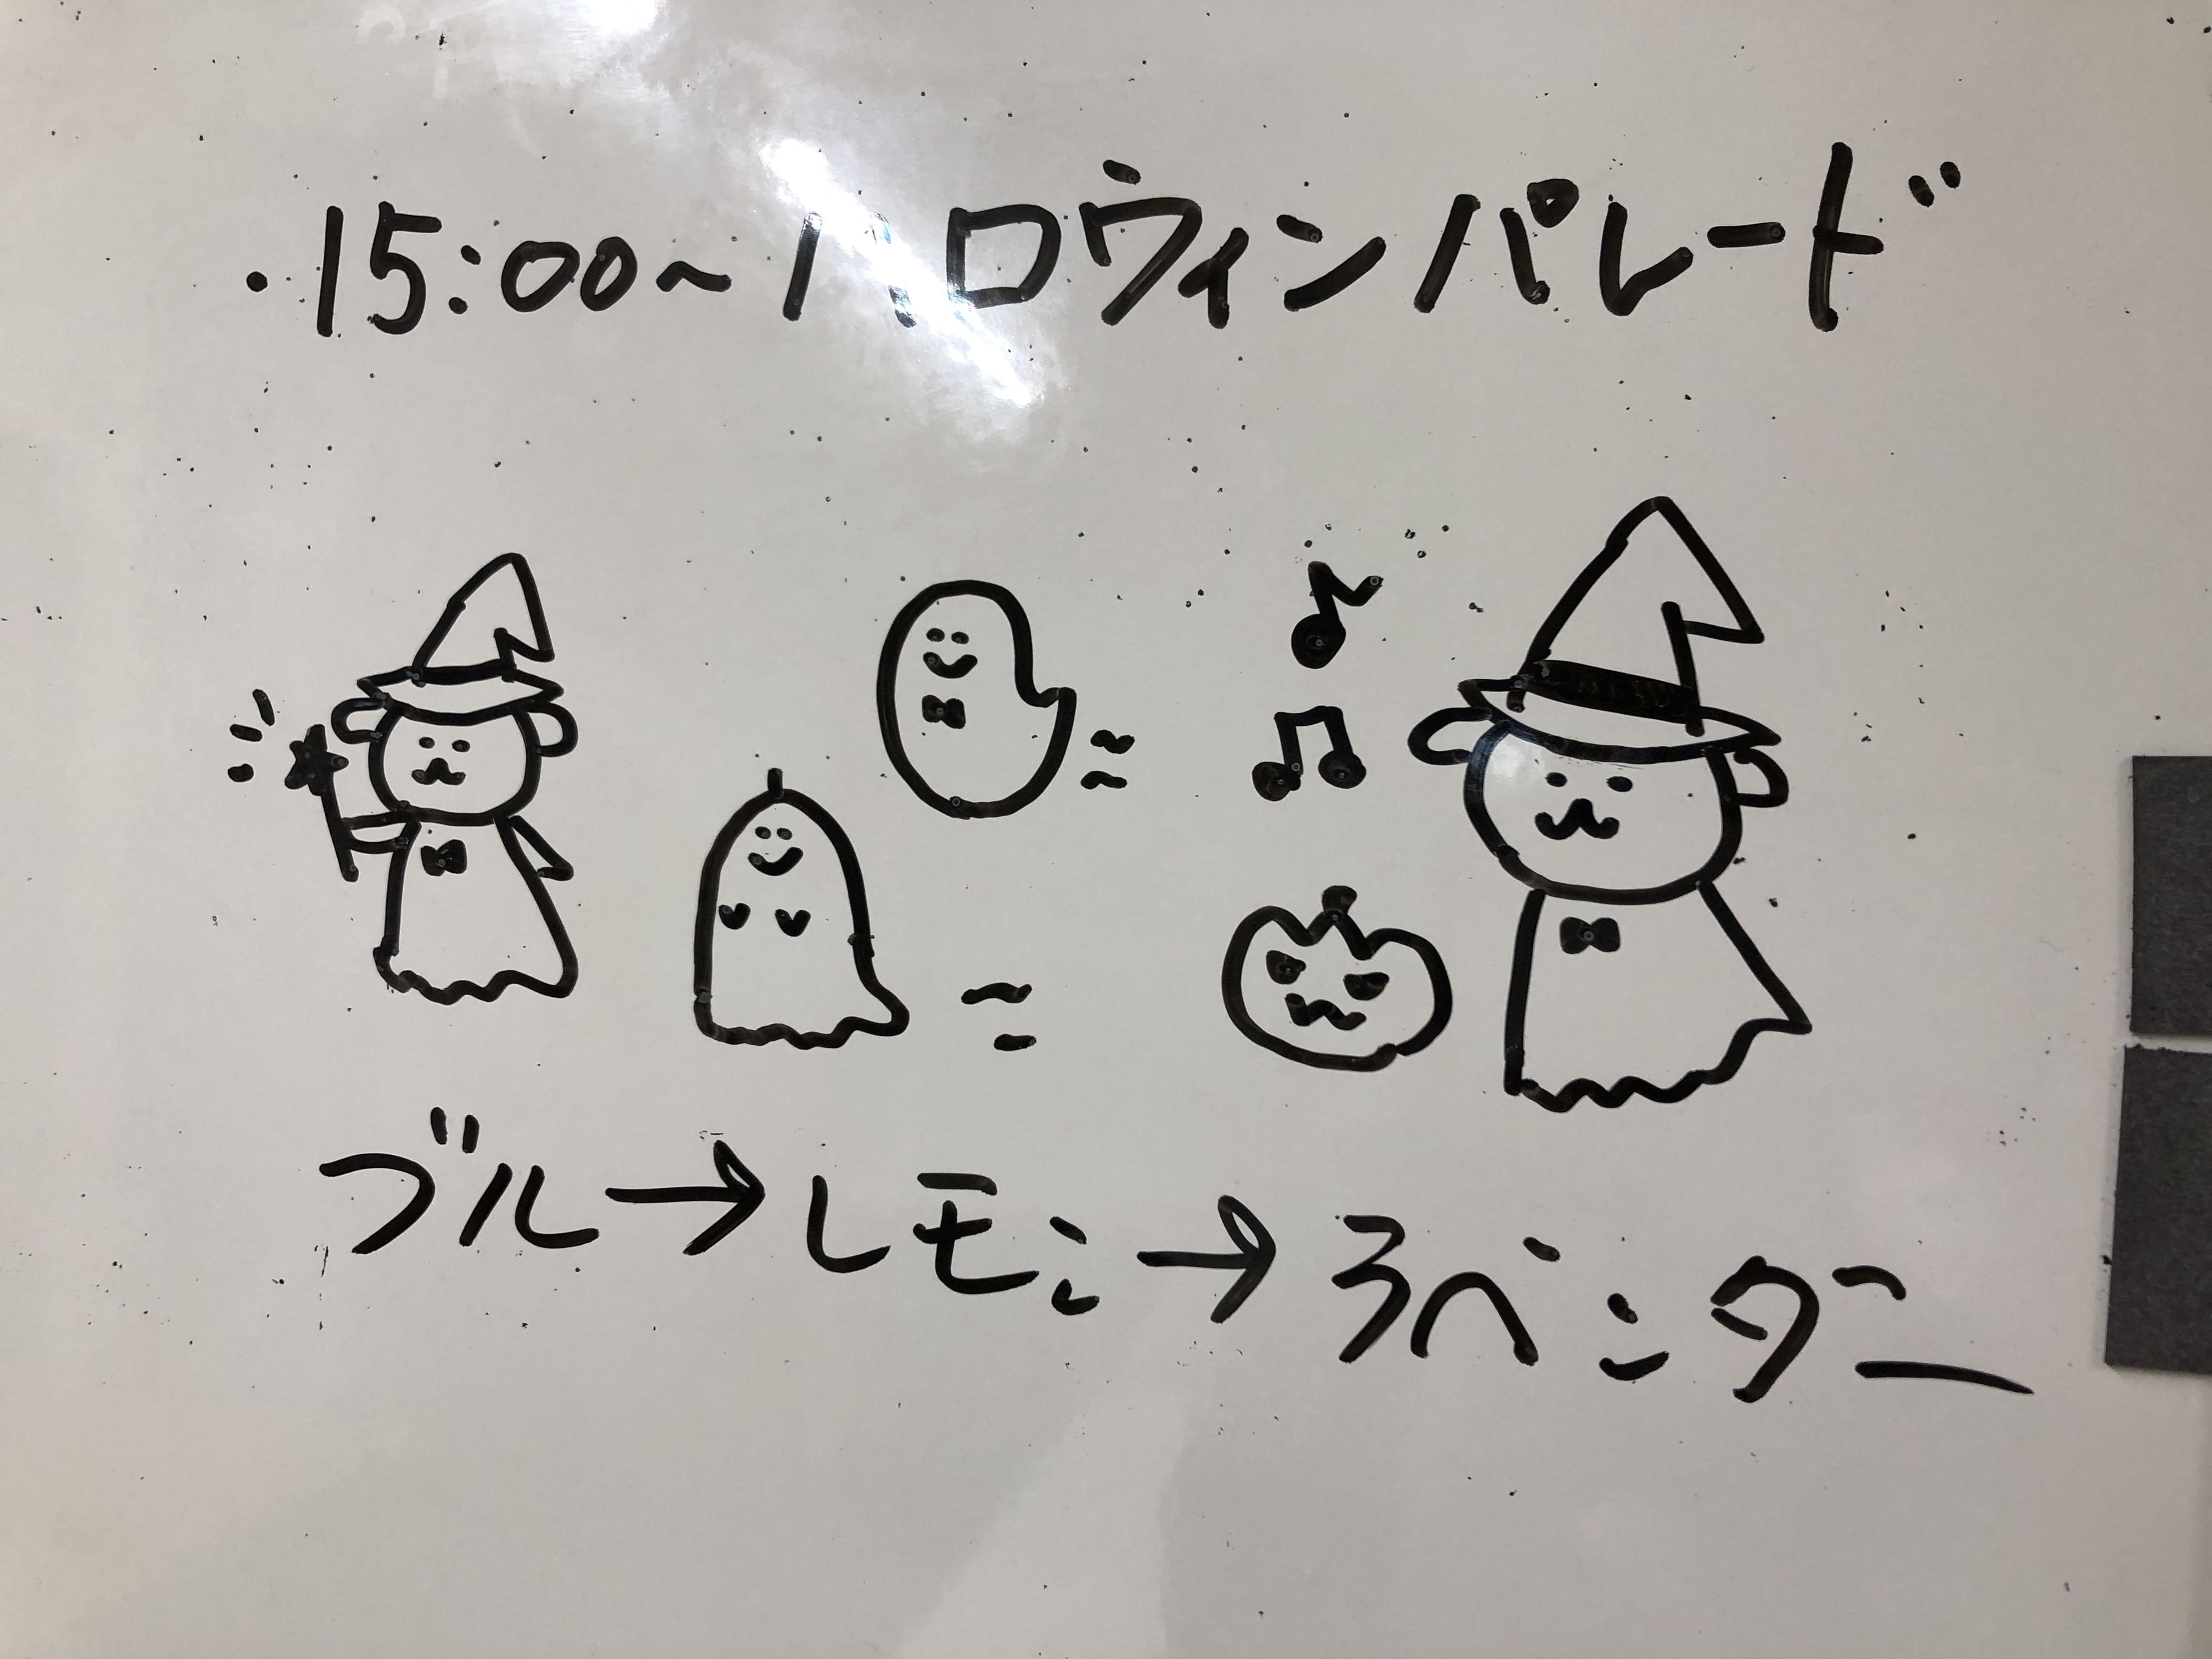 ・15:00〜ハロウィンパレード
ブル→レモン→ラベンダー